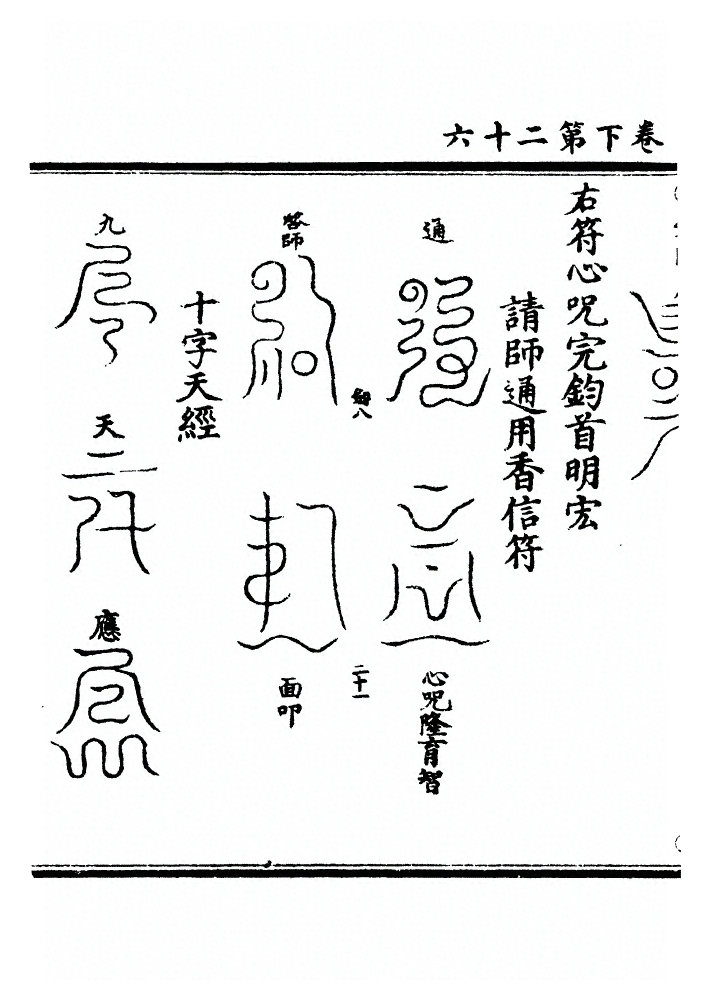 卷下第二十六
右符心咒完鈞首明宏
請師通用香信符
通
心咒隆育智
二十一
啓師
面叩
十字天經
九
天
應